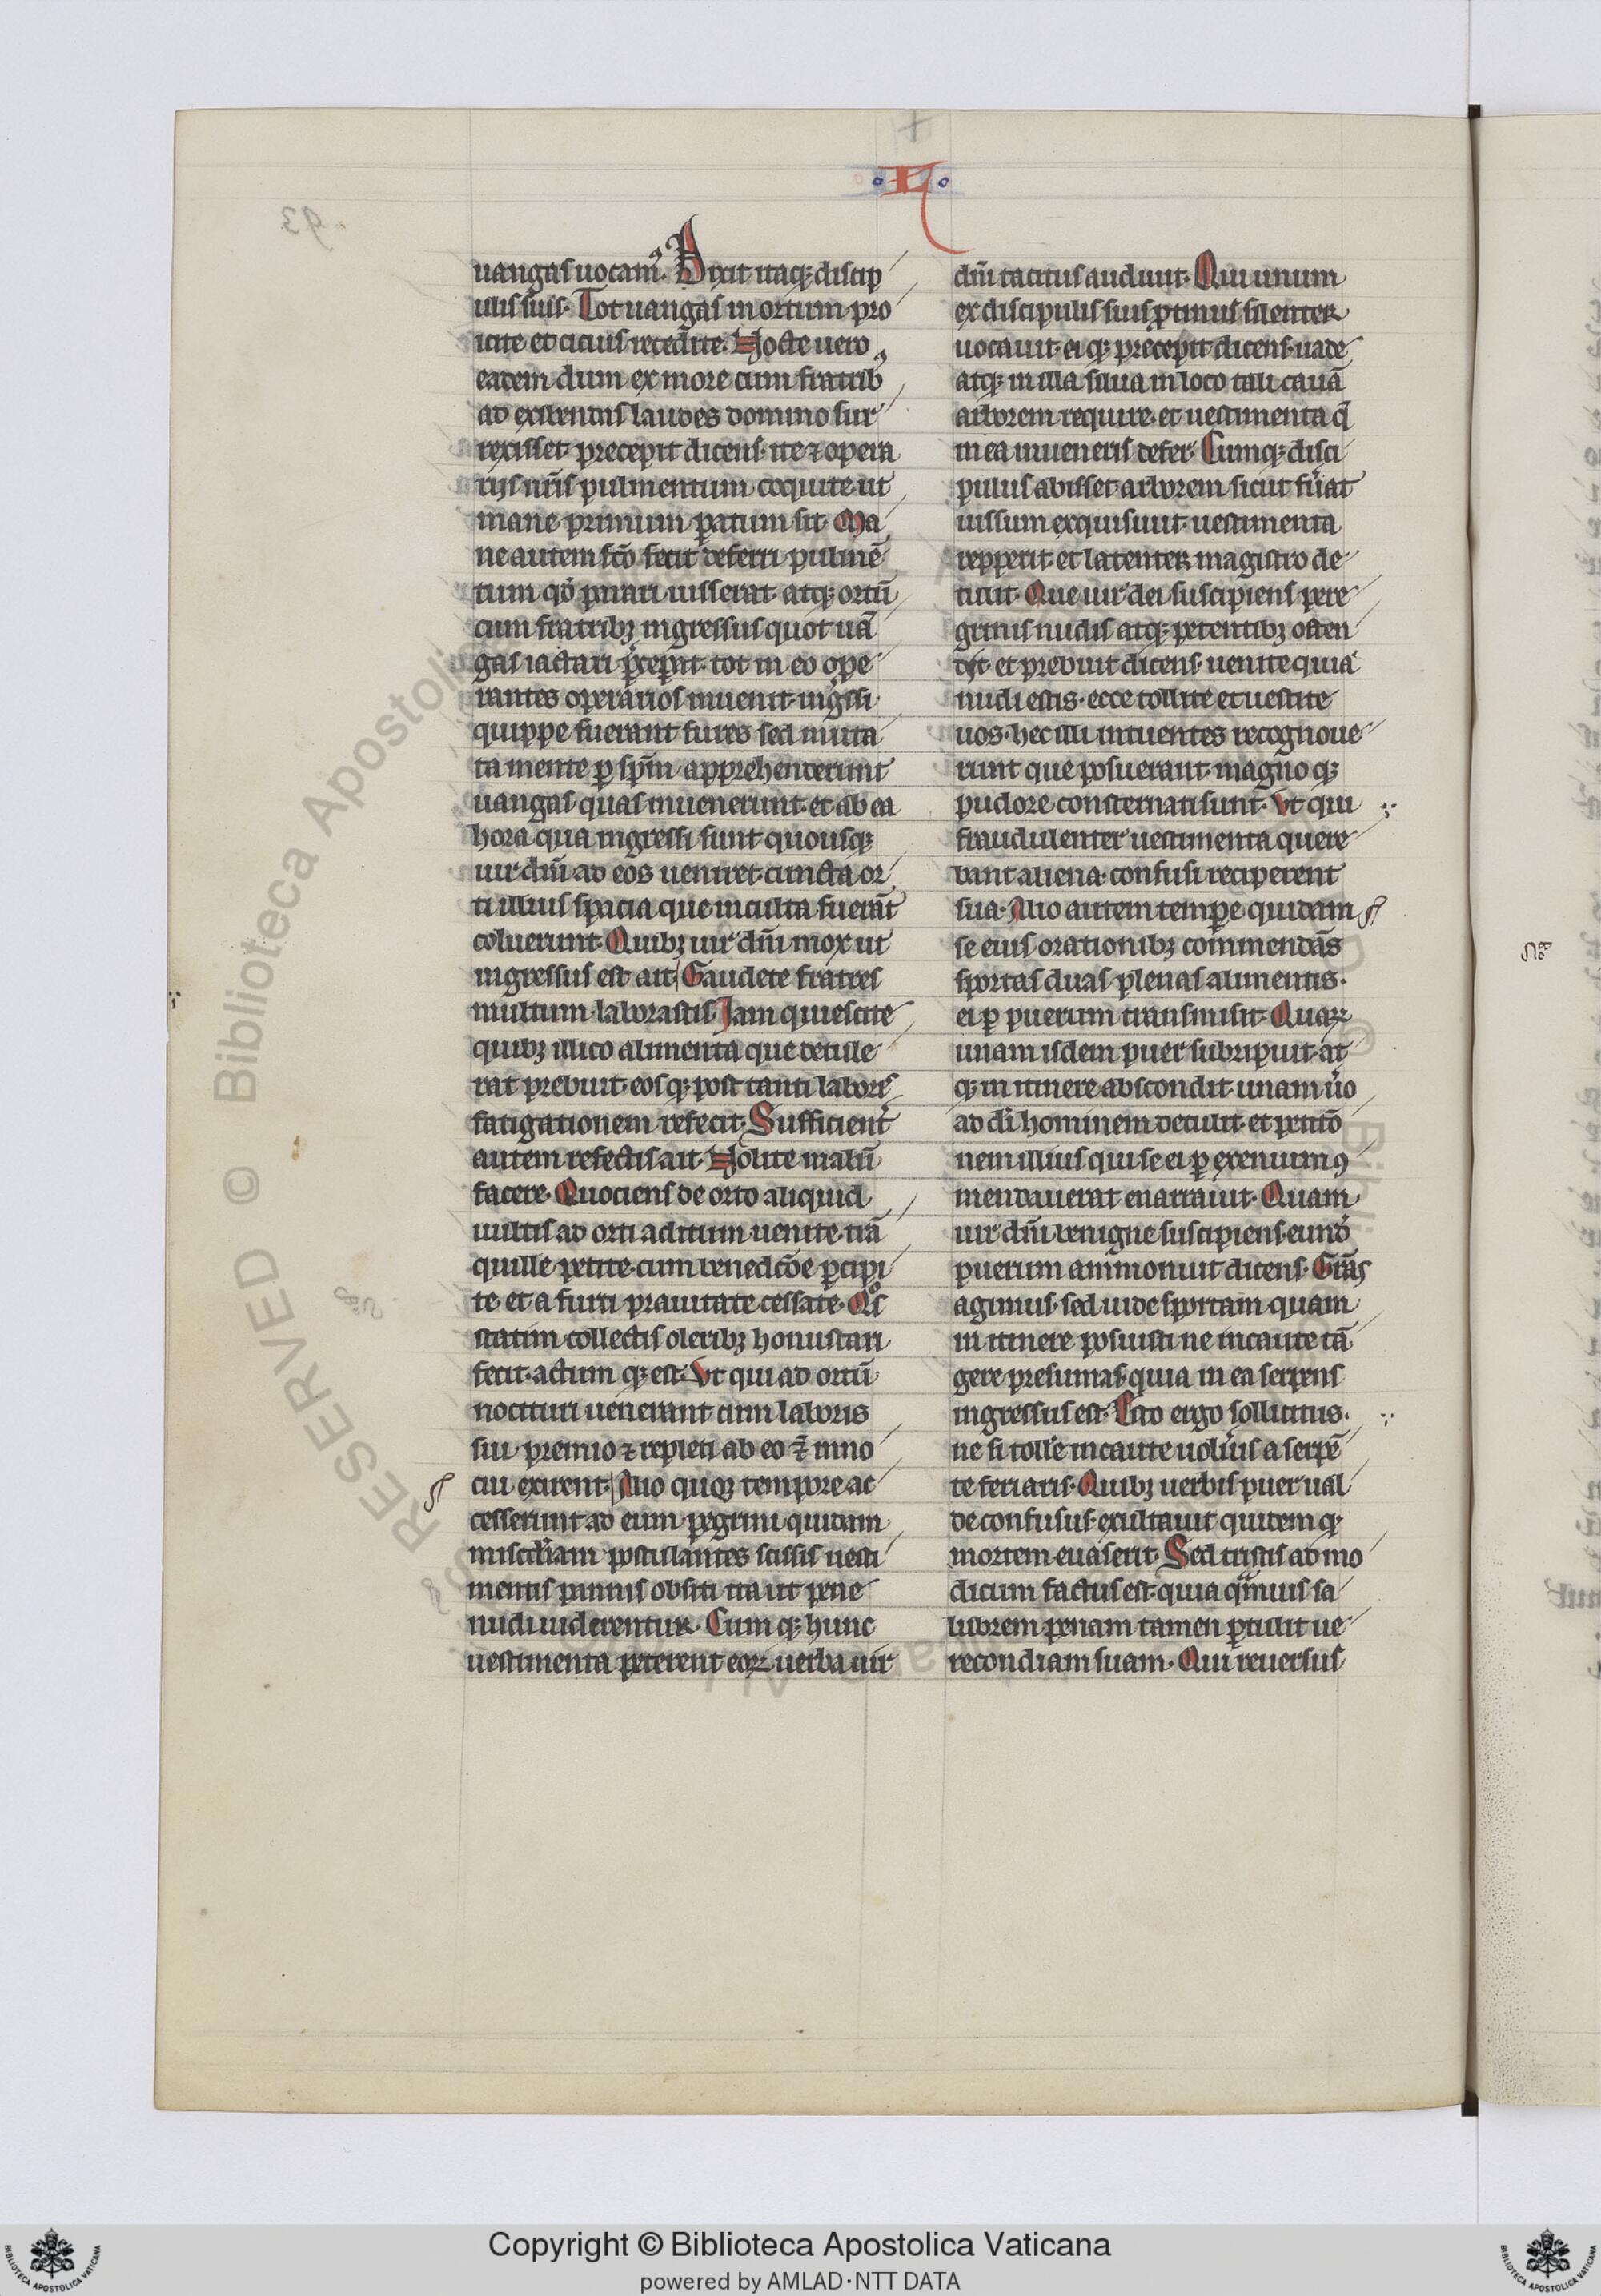 L
93
uangas uocamꝰ. Dixit itaqꝫ discip
ulis suis. Tot uangas in ortum pro
icite et cicius recedite. Nocte uero
eadem dum ex more cum fratribꝰ
ad exibendas laudes domino sur
rexisset precepit dicens. ite ⁊ opera
rijs nr̃is pulmentum coquite. ut
mane primum ꝑatum sit. Ma
ne autem fc̃o fecit deferri pulmẽ
tum qd̾ ꝑari iusserat. atqꝫ ortũ
cum fratribꝫ ingressus quot uã
gas iactari p̃cepit. tot in eo ope
rantes operarios inuenit. ing̾ssi
quippe fuerant fures sed muta
ta mente ꝑ sp̃m apprehenderunt
uangas quas inuenerunt. et ab ea
hora qua ingressi sunt quousqꝫ
uir dñi ad eos ueniret. cuncta or
ti illius spacia que inculta fuerãt
coluerunt. Quibꝫ uir dñi mox ut
ingressus est ait. Gaudete fratres
multum laborastis. Iam quiescite
quibꝫ illico alimenta que detule
rat prebuit. eosqꝫ post tanti laboris
fatigationem refecit. Sufficienť
autem refectis ait. Nolite malũ
facere. Quociens de orto aliquid
uultis ad orti aditum uenite. trã
quille petite. cum benedc̃õe ꝑcipi
te. et a furti prauitate cessate. Qͦs
statim collectis oleribꝫ honustari
fecit. actum qꝫ est. Vt qui ad ortũ
nocituri uenerant cum laboris
sui premio ⁊ repleti ab eo ⁊ inno
cui exirent. Alio quoqꝫ tempore ac
cesserunt ad eum ꝑegrini quidam
mis̃cdiam postulantes scissis uesti
mentis pannis obsiti ita ut pene
nudi uiderentur. Cum qꝫ hunc
uestimenta peterent eoꝝ uerba uir
dñi tacitus audiuit. Qui unum
ex discipulis suis ꝓtinus silenter
uocauit. eiqꝫ precepit dicens. uade
atqꝫ in illa silua in loco tali cauã
arborem require. et uestimenta q̃
in ea inueneris defer. Cumqꝫ disci
pulus abisset arborem sicut fu̾at
iussum exquisiuit. uestimenta
repperit. et latenter magistro de
tulit. Que uir dei suscipiens pere
grinis nudis atqꝫ petentibꝫ osten
dit et prebuit dicens. uenite quia
nudi estis. ecce tollite et uestite
uos. hec illi intuentes recognoue
runt que posuerant. magno qꝫ
pudore consternati sunt. Vt qui
fraudulenter uestimenta quere
bant aliena. confusi reciperent
sua. Alio autem temꝑe quidam
se eius orationibꝫ commendãs
sportas duas plenas alimentis.
ei ꝑ puerum transmisit. Quaꝝ
unam isdem puer subripuit. at
qꝫ in itinere abscondit. unam u̾o
ad di̾ hominem detulit. et petitõ
nem illius qui se ei ꝑ exenium ꝯ
mendauerat enarrauit. Quam
uir dñi benigne suscipiens. eund̾
puerum ammonuit dicens. Grãs
agimus. sed uide sportam quam
in itinere posuisti ne incaute tã
gere presumas. quia in ea serpens
ingressus est. Esto ergo sollicitus.
ne si tolle̾ incaute uolu̾is a serpẽ
te feriaris. Quibꝫ uerbis puer ual
de confusus. exultauit quidem qꝫ
mortem euaserit. Sed tristis ad mo
dicum factus est. quia qͣmuis sa
lubrem penam tamen ꝑtulit ue
recondiam suam. Qui reuersus
RESERVED © Biblioteca Apostolica
Copyright © Biblioteca Apostolica Vaticana
powered by AMLAD·NTT DATA